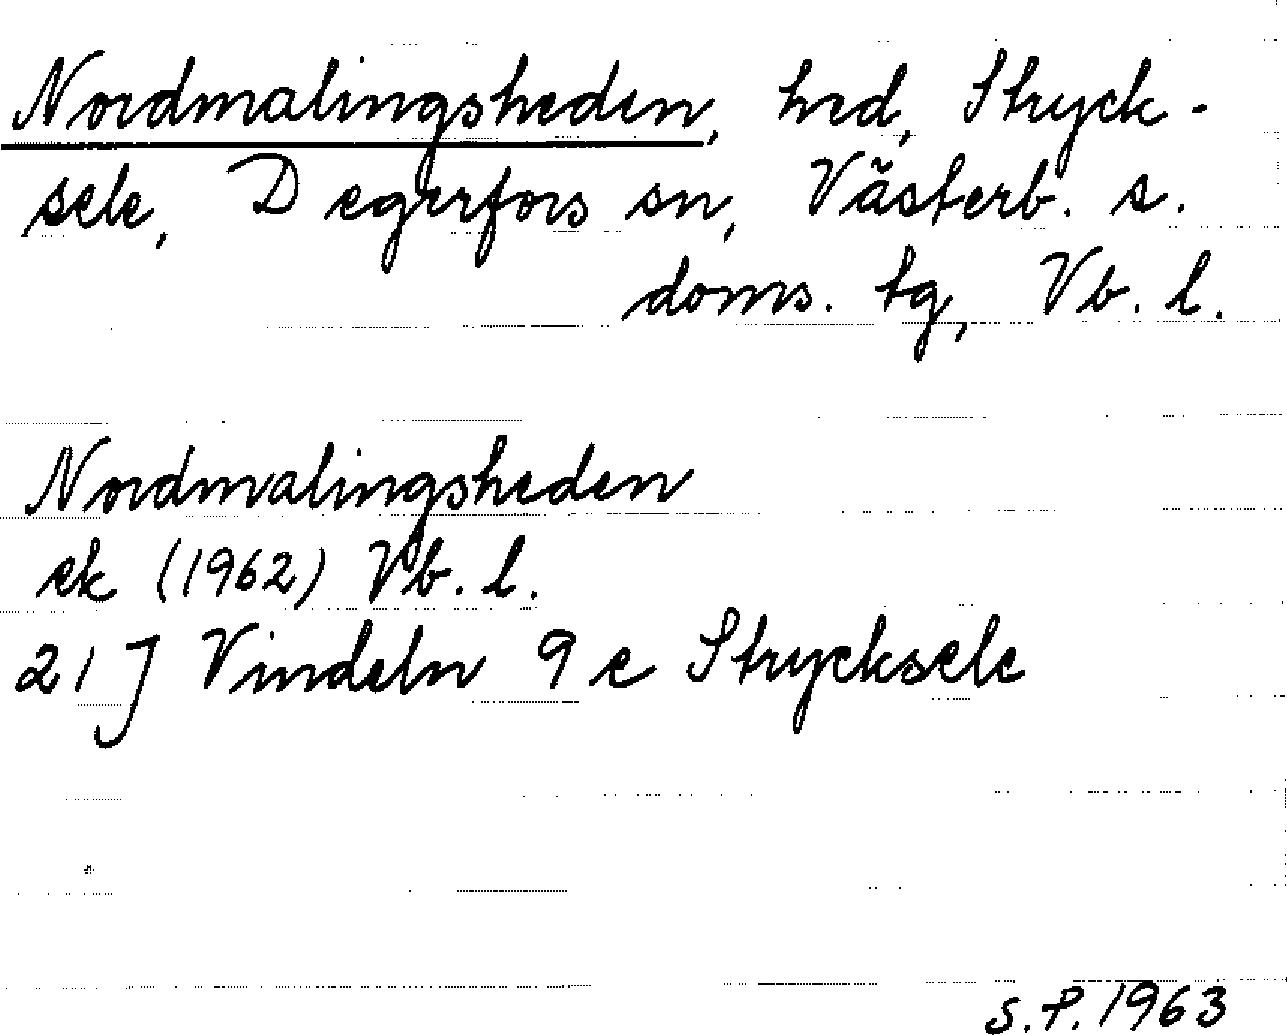 Nordmalingsheden, hed, Stryck-
sele, Degerfors sn, Västerb. s.
doms. tg, Vb. l.
Nordmalingsheden
ek (1962) Vb. l.
21 J Vindeln 9 e Strycksele
S.P. 1963